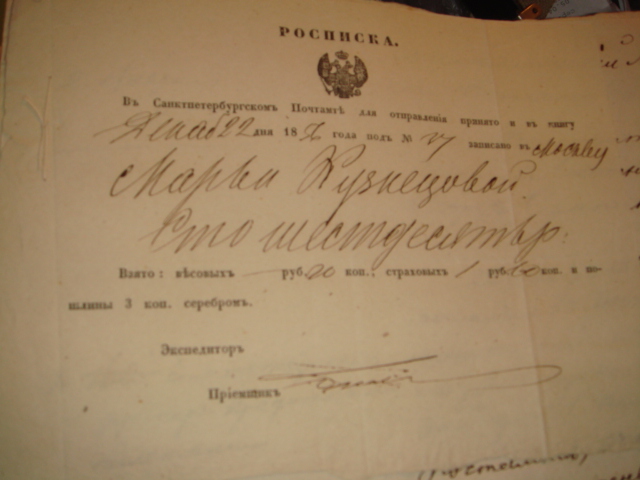 РОСПИСКА.
Въ Санктпетербургскомъ Почтамтѣ для отправленія принято и въ книгу
Декаб 22 дня 18 года подъ № записано въ Москву
Марьи Кузнецовой
Сто шестдесятъ р:
Взято: вѣсовыхъ — руб. 20 коп.; страховыхъ 1 руб. 60 коп. и по-
шлины 3 коп. серебромъ.
Экспедиторъ
Пріемщикъ